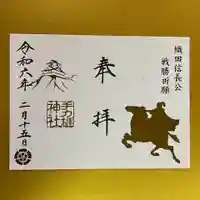 織田信長公
戦勝祈願
奉拝
手力雄
神社
令和六年
二月十五日